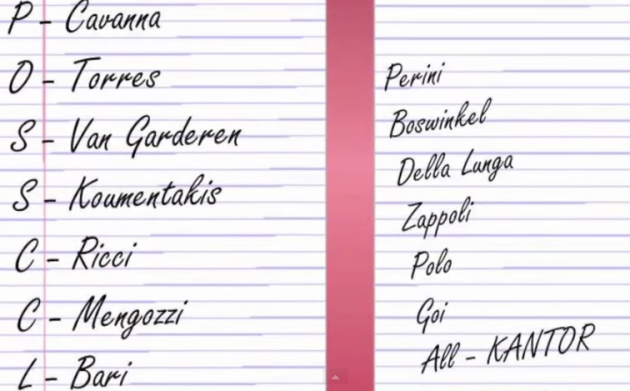 P - Cavanna
O - Torres
S - Van Garderen
S - Koumentakis
C - Ricci
C - Mengozzi
L - Bari
Perini
Boswinkel
Della Lunga
Zappoli
Polo
Goi
All - KANTOR